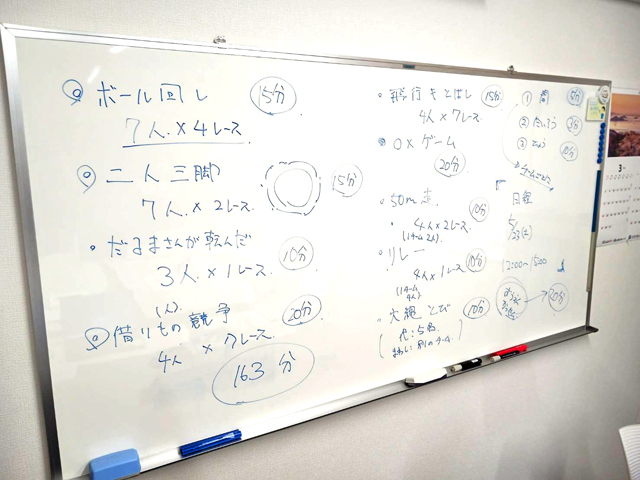 ボール回し 15分
7人 × 4レース
二人三脚 15分
7人 × 2レース
だるまさんが転んだ 10分
3人 × 1レース
(人)
借りもの競争 20分
4人 × 7レース
163分
飛行きとばし 15分
4人 × 7レース
○×ゲーム
20分
50m走 10分
4人 × 2レース
(1チーム2人)
リレー 10分
4人 × 1レース
(1チーム
4人)
大縄とび 10分
代:5名
まわし:別のチーム
①
②
③
日程
5/23(土)
12:00〜15:00
20分
3